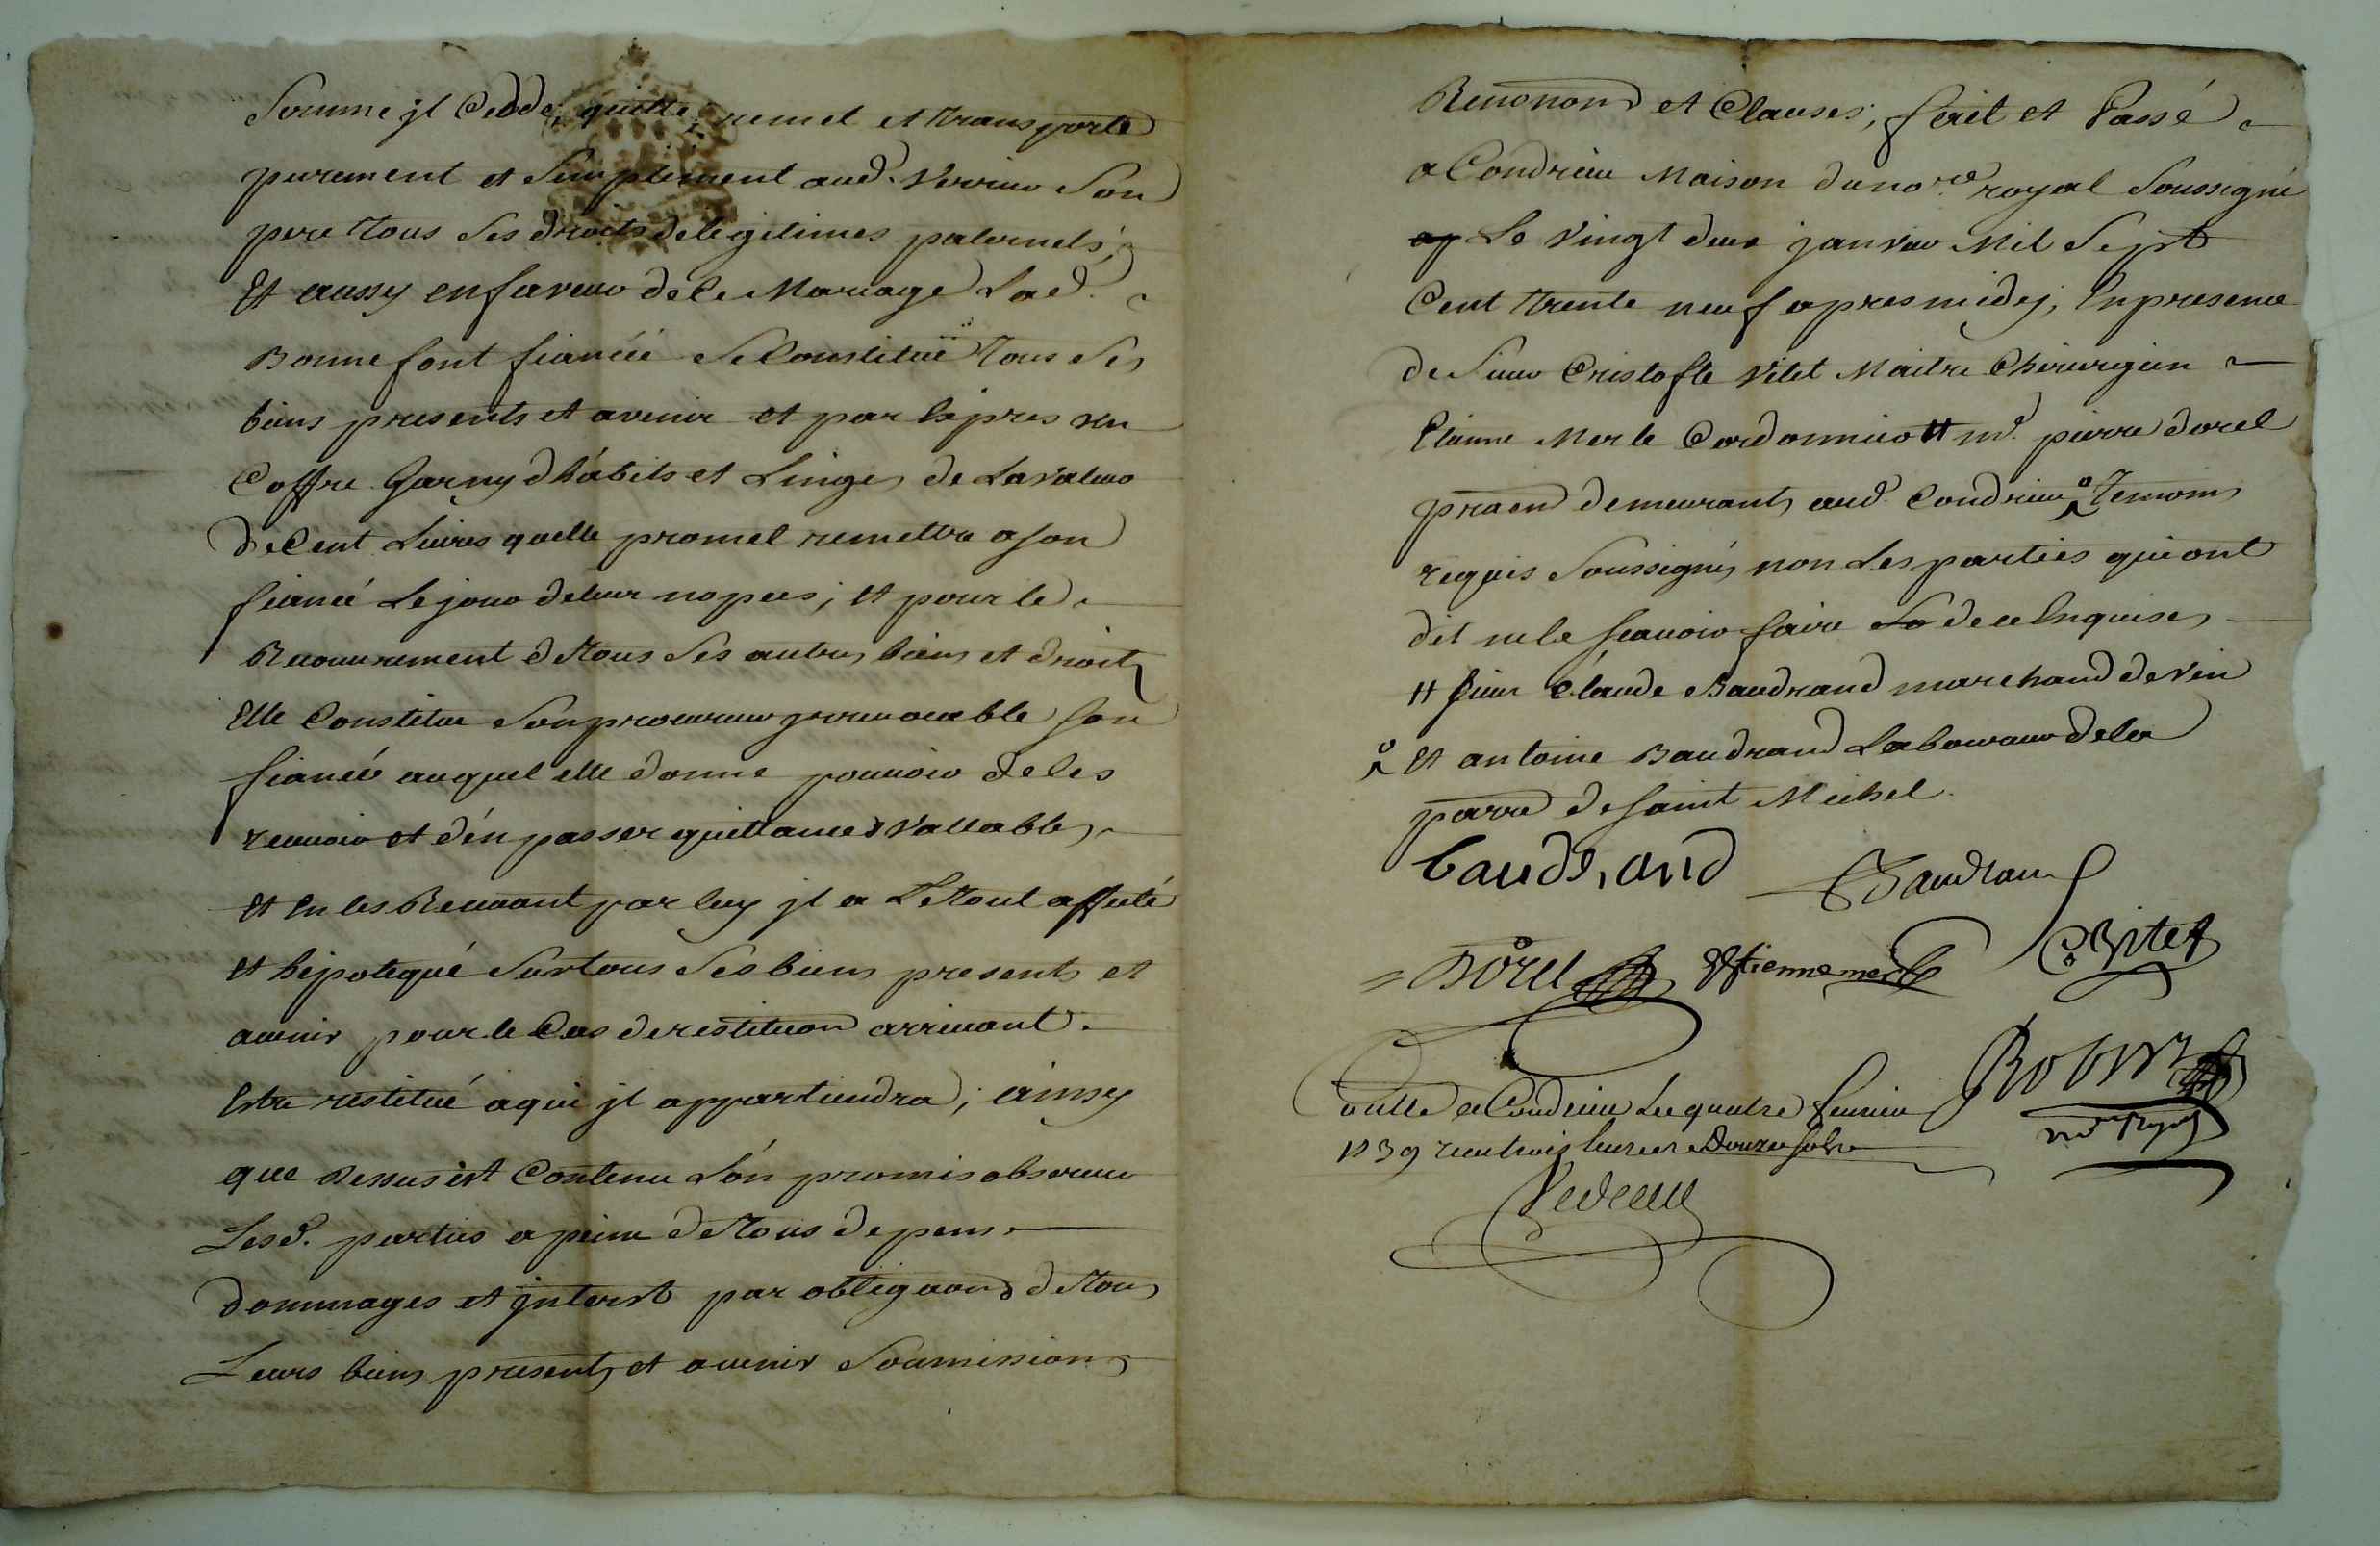 Somme jl Cedde, quitte, remet et transporte
purement et Simplement aud. Verrier Son
pere tous Ses droits de legitimes paternels,
Et aussy en faveur de ce Mariage Lad.
Bonnefont fiancéé Se Constitüe tous Ses
biens presents et avenir et par Expres un
Coffre Garny d'habits et Linges de La valeur
de Cent Livres quelle promet remettre a son
fiancé Le jour de leur nopces; et pour le
Recouvrement de tous Ses autres biens et droits
Elle Constitue Son procureur jrrevocable son
fiancéé auquel elle donne pouvoir de les
recevoir et d'én passer quittances vallables
Et En les Recevant par luy jl a Le tout affecté
et hipotequé Sur tous Ses biens presents et
avenir pour le Cas de restituon arrivant
Estre restitué a qui jl appartiendra; ainsy
que dessus est Contenu L'ón promis observer
Lesd. parties a peine de tous depens
dommages et jnterest par obligaons de tous
Leurs biens presents et avenir Soumissions
Renonons et Clauses; fait et Passé
a Condrieu Maison du nore. royal Soussigné
Le vingt deux janvier Mil Sept
Cent trente neuf apres midy, En presence
de Sieur Cristofle vitet Maitre Chirurgien
Etienne Merle Cordonnier # md. pierre dorel
praen demeurants aud. Condrieu Temoins
requis Soussignés non Les parties qui ont
dit ne le scavoir faire de ce Enquises
# Sieur Claude Baudrand marchand de vin
Et antoine Baudrand Laboureur de la
parre de saint Michel
baudrand Baudrand
Dorel Etienne merle C. Vitet
Conllé a Condrieu Le quatre fevrier
1739 reçu trois livres Douze sols